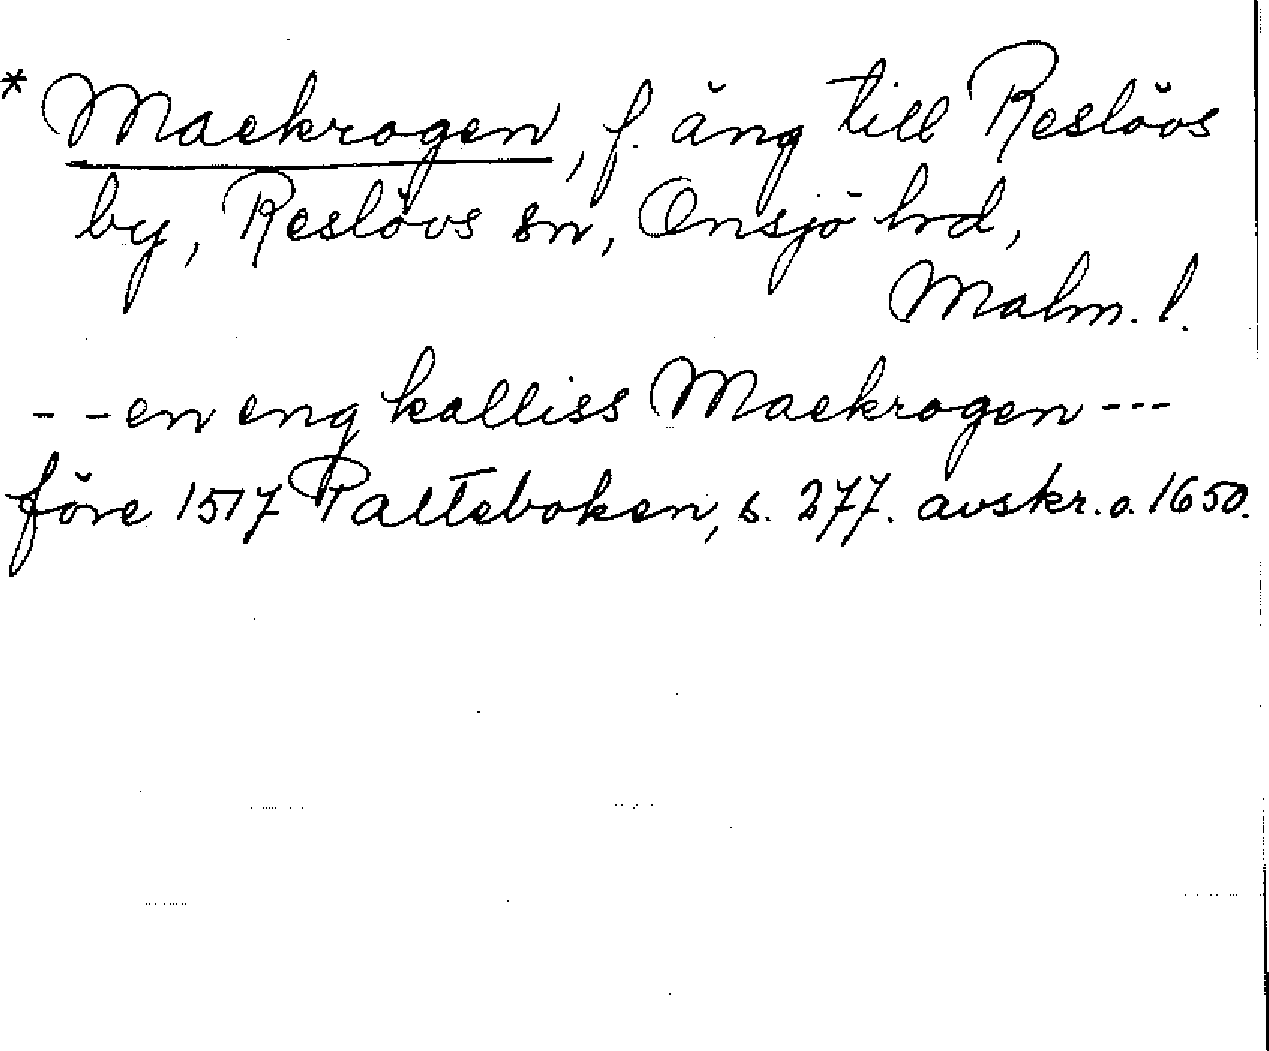 * Maekrogen, f. äng till Reslövs
by, Reslövs sn, Onsjö hrd,
Malm. l.
- - en eng kalliss Maekrogen ---
före 1517 Palteboken, s. 277. avskr. o. 1650.